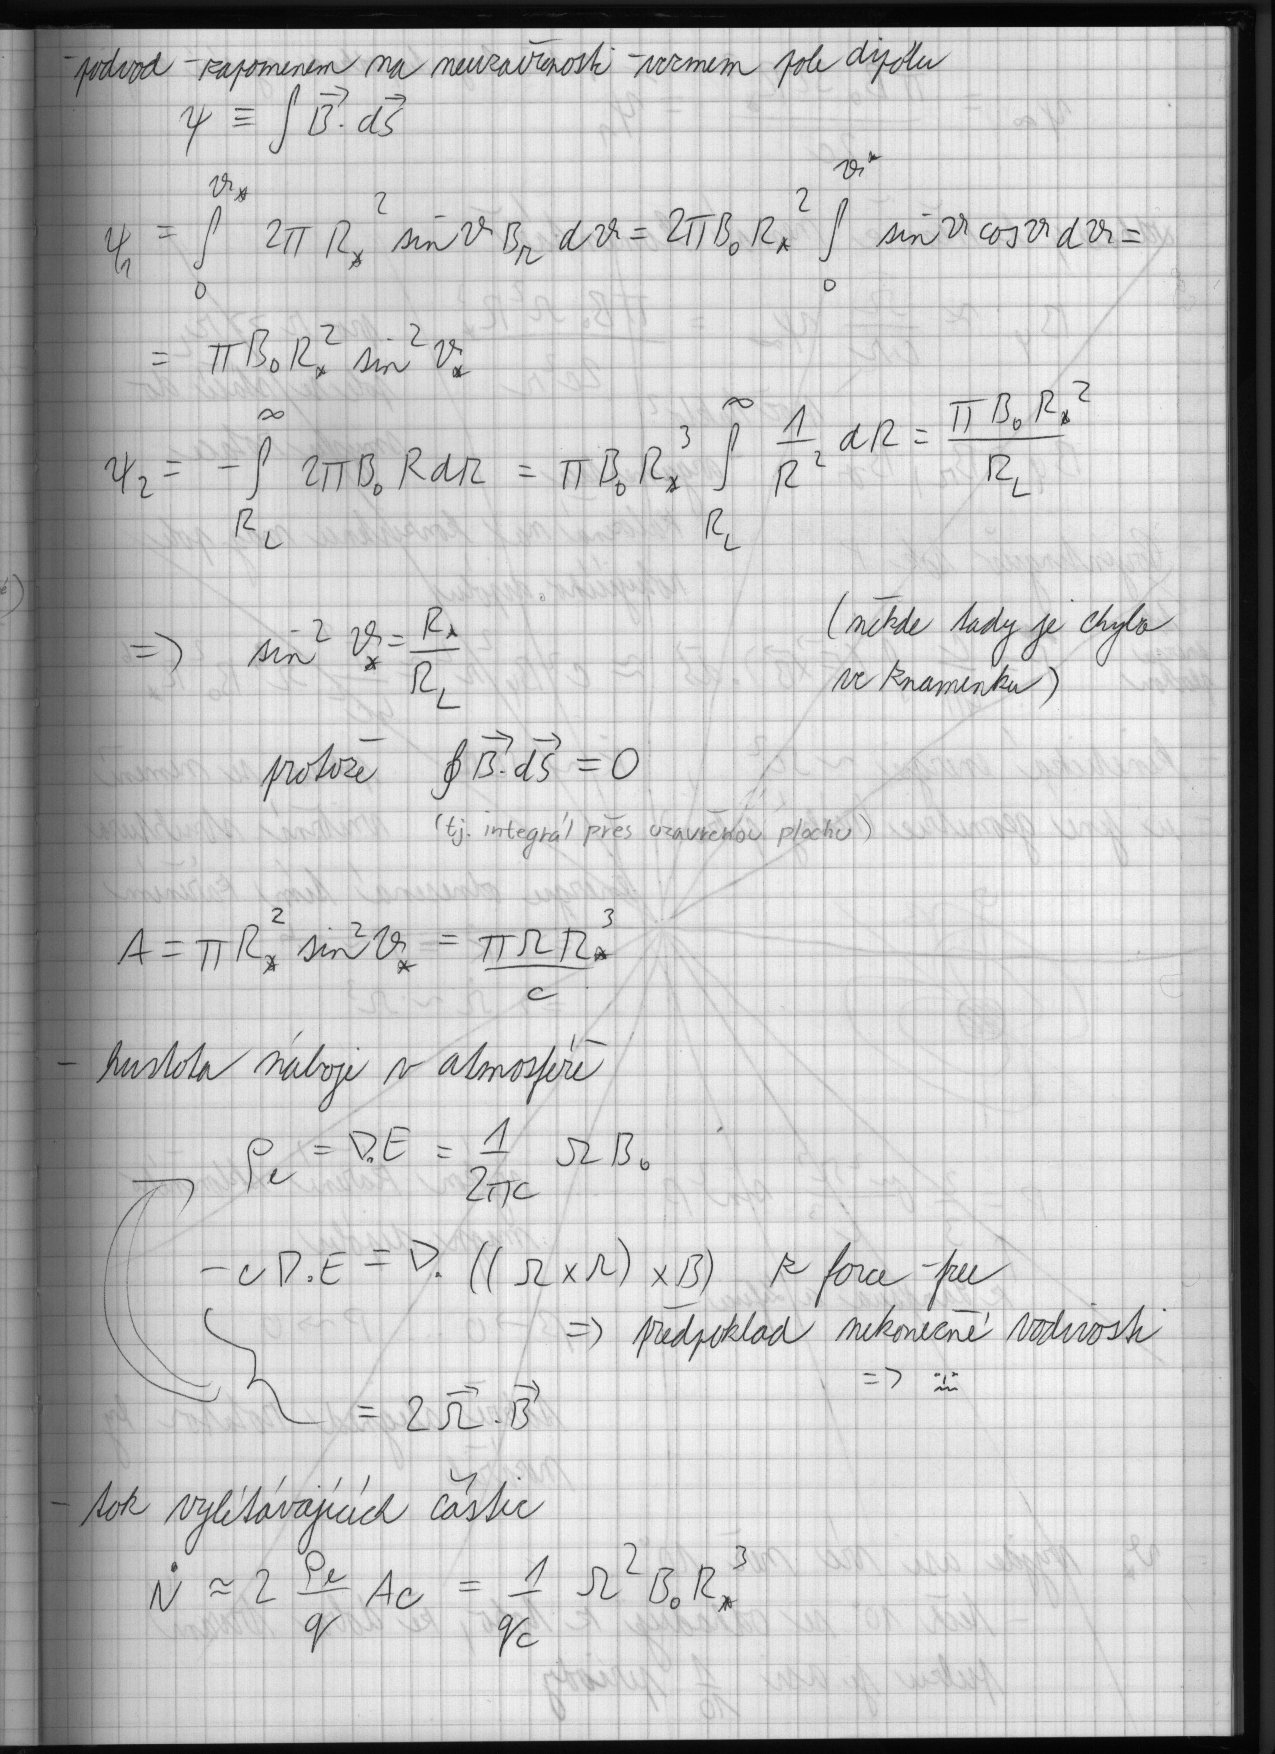 - podvod - zapomenem na neuzavřenosti - vezmem pole dipólu
ψ ≡ ∫ B⃗ · dS⃗
ψ₁ = ∫₀^{ϑ_*} 2π R_*² sin ϑ B_R dϑ = 2π B₀ R_*² ∫₀^{ϑ_*} sin ϑ cos ϑ dϑ =
= π B₀ R_*² sin² ϑ_*
ψ₂ = - ∫_{R_L}^∞ 2π B₀ R dR = π B₀ R_*³ ∫_{R_L}^∞ 1/R² dR = π B₀ R_*² / R_L
=> sin² ϑ_* = R_* / R_L (někde tady je chyba
ve znamenku)
protože ∮ B⃗ · dS⃗ = 0
(tj. integrál přes uzavřenou plochu)
A = π R_*² sin² ϑ_* = π Ω R_*³ / c
- hustota náboje v atmosféře
ρ_e = ∇.E = 1/(2πc) Ω B₀
- c ∇.E = ∇. ((Ω × R) × B) z force-free
=> předpoklad nekonečné vodivosti
=>
= 2 Ω⃗ . B⃗
- tok vylétávajících částic
Ṅ ≈ 2 ρ_e/q A c = 1/(qc) Ω² B₀ R_*³